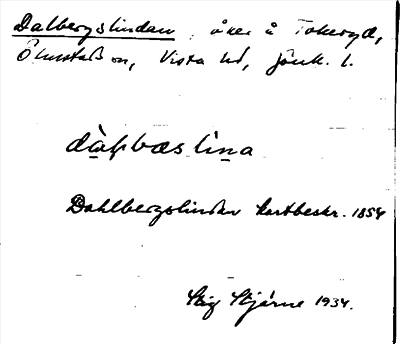 Dalbergslindan, åker å Tokeryd,
Ölmstads sn, Vista hd, Jönk. l.
dàɫbæs lìna
Dahlbergslindan kartbeskr. 1854
Stig Stjärne 1934.